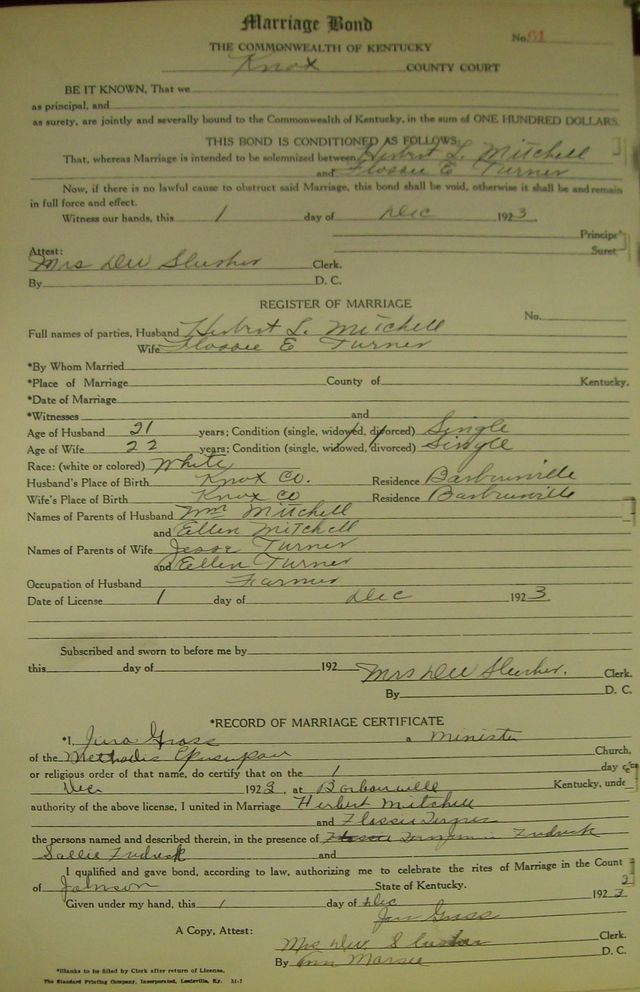 Marriage Bond
No. 61
THE COMMONWEALTH OF KENTUCKY
Knox COUNTY COURT
BE IT KNOWN, That we
as principal, and
as surety, are jointly and severally bound to the Commonwealth of Kentucky, in the sum of ONE HUNDRED DOLLARS.
THIS BOND IS CONDITIONED AS FOLLOWS:
That, whereas Marriage is intended to be solemnized between Herbert L. Mitchell
and Flossie E Turner
Now, if there is no lawful cause to obstruct said Marriage, this bond shall be void, otherwise it shall be and remain
in full force and effect.
Witness our hands, this 1 day of Dec 1923.
Principal
Surety
Attest:
Mrs Dew Slusher Clerk.
By D. C.
REGISTER OF MARRIAGE
No.
Full names of parties, Husband Herbert L. Mitchell
Wife Flossie E Turner
*By Whom Married
*Place of Marriage County of Kentucky.
*Date of Marriage
*Witnesses and
Age of Husband 21 years; Condition (single, widowed, divorced) Single
Age of Wife 22 years; Condition (single, widowed, divorced) Single
Race: (white or colored) White
Husband's Place of Birth Knox Co. Residence Barbourville
Wife's Place of Birth Knox Co Residence Barbourville
Names of Parents of Husband Wm Mitchell
and Ellen Mitchell
Names of Parents of Wife Jesse Turner
and Ellen Turner
Occupation of Husband Farmer
Date of License 1 day of Dec 1923
Subscribed and sworn to before me by
this day of 192 Mrs Dew Slusher. Clerk.
By D. C.
*RECORD OF MARRIAGE CERTIFICATE
*I, Gross a Minister
of the Methodis Episcopal Church.
or religious order of that name, do certify that on the 1 day of
Dec 1923, at Barbourville Kentucky, unde
authority of the above license, I united in Marriage Herbert Mitchell
and Flossie
the persons named and described therein, in the presence of
Sallie and
I qualified and gave bond, according to law, authorizing me to celebrate the rites of Marriage in the Count
of Johnson State of Kentucky.
Given under my hand, this 1 day of Dec 1923
Gross
A Copy, Attest:
Mrs Dew Slusher Clerk.
By D. C.
*Blanks to be filled by Clerk after return of License.
The Standard Printing Company, Incorporated, Louisville, Ky. M-7